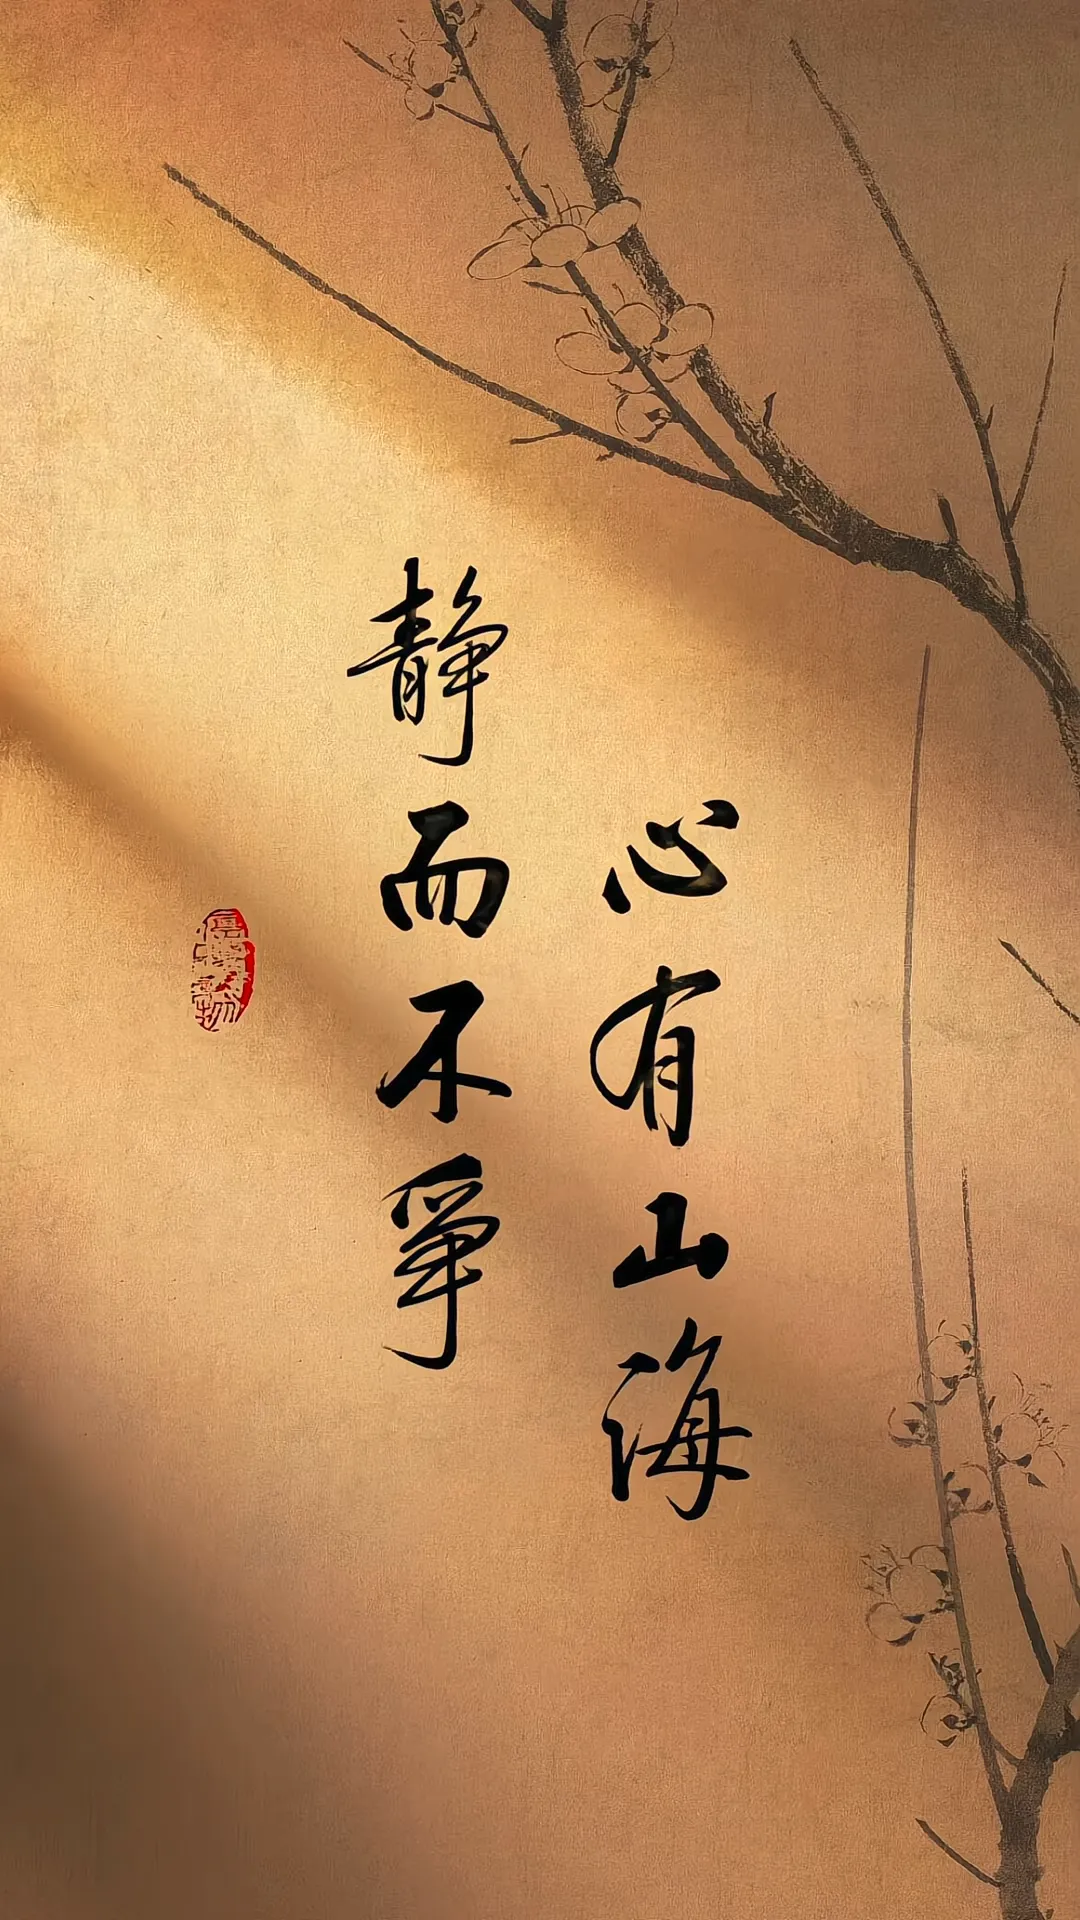 心有山海
静而不爭